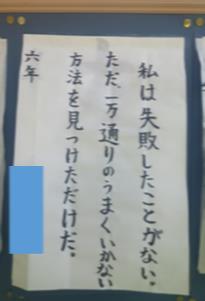 私は失敗したことがない。
ただ、一万通りのうまくいかない
方法を見つけただけだ。
六年